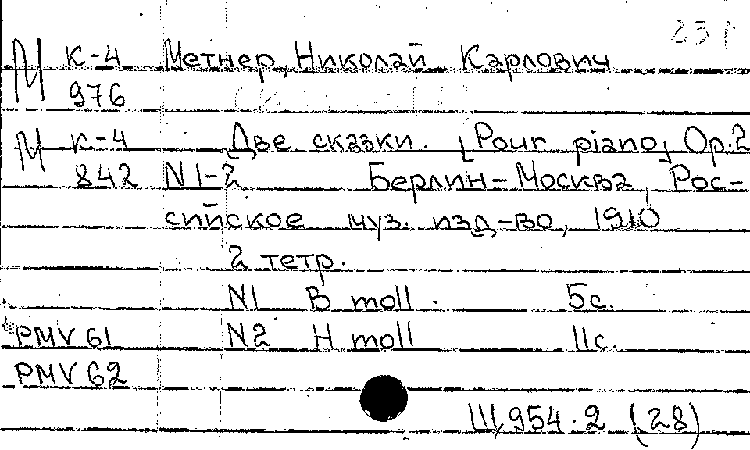 23
М К-4 Метнер, Николай Карлович
976
М К-4 Две сказки. [Pour piano] Op.2
842 N1-2 Берлин-Москва, Рос-
сийское муз. изд-во, 1910
2 тетр.
N1 B moll. 5с.
PMV 61 N2 H moll 11с.
PMV 62
III, 954.2 (28)